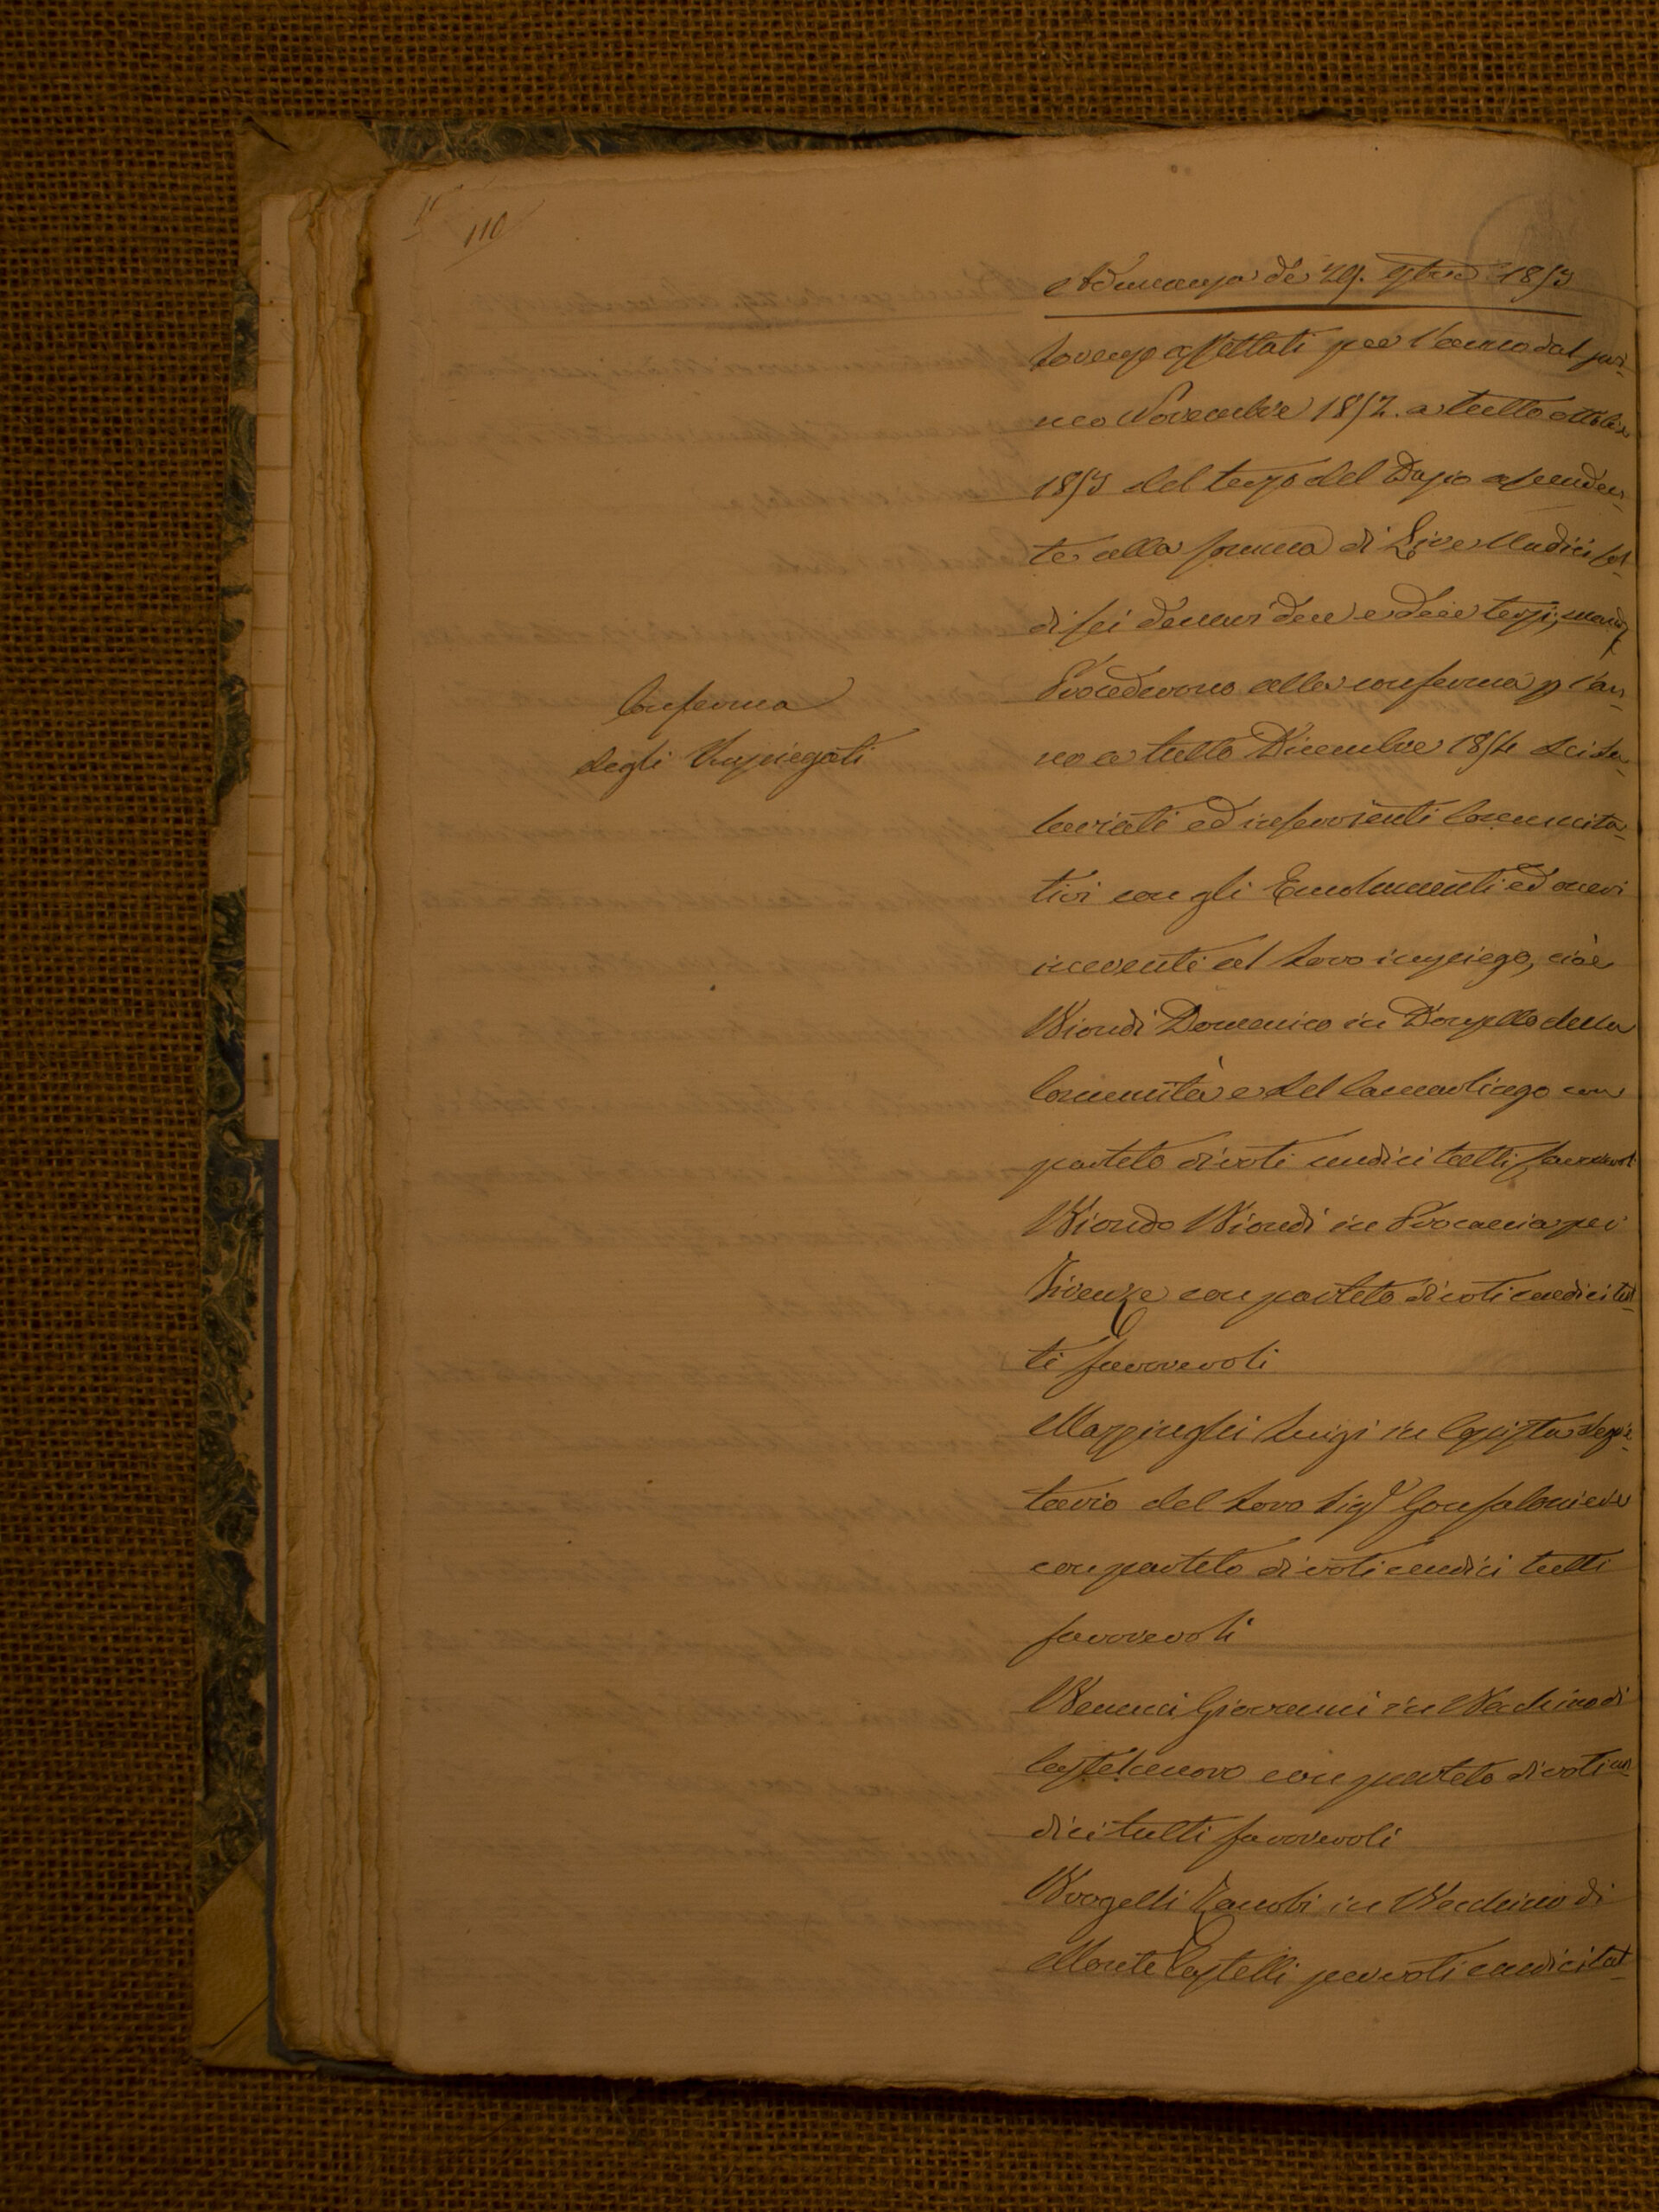 110
Adunanza de 29. 9bre 1853
loro affettati per l'anno dal pri-
mo Novembre 1852. a tutto ottobre
1853 del terzo del Dazio ascenden-
te alla somma di Lire Undici sol-
di sei denari due e due terzi, mand
Conferma
degli Impiegati
Procederono alla conferma p l'an-
no a tutto Dicembre 1854 dei sa-
lariati ed inservienti Comunita-
tivi con gli Emolumenti ed oneri
inerenti al loro impiego, cioè
Biondi Domenico in Donzello della
Comunità e del Camarlingo con
partito di voti undici tutti favorevoli
Biondo Biondi in Procaccia per
Firenze con partito di voti undici tut-
ti favorevoli
Mazzinghi Luigi in Copista Segre-
tario del loro Sigr Gonfaloniere
con partito di voti undici tutti
favorevoli
Benucci Giovanni in Becchino di
Castelnuovo con partito di voti un-
dici tutti favorevoli
Borgelli Zanobi in Becchino di
Monte Castelli per voti undici tut-